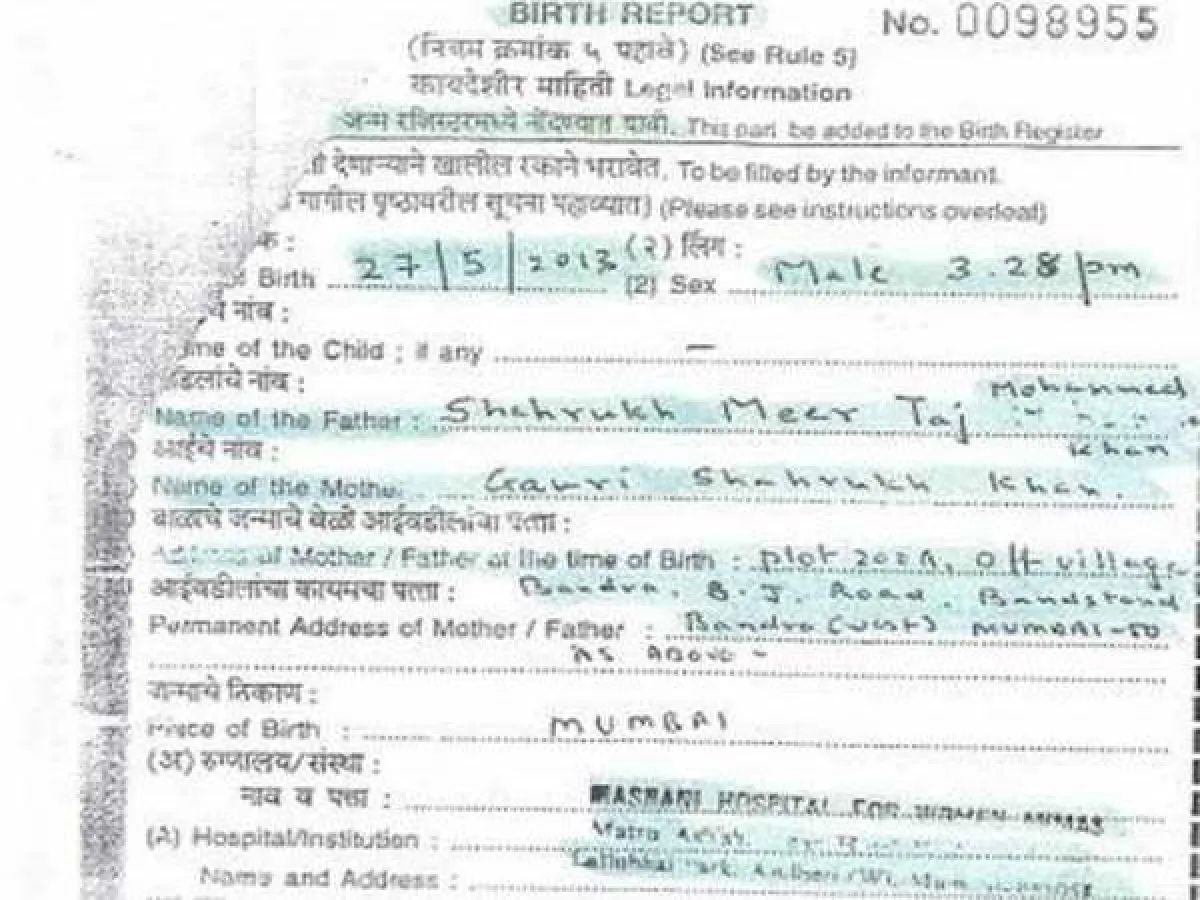 BIRTH REPORT
No. 0098955
(नियम क्रमांक ५ पहावे) (See Rule 5)
कायदेशीर माहिती Legal Information
जन्म रजिस्टरमध्ये नोंदण्यात यावी. This part be added to the Birth Register
देणाऱ्याने खालील रकाने भरावेत. To be filled by the informant.
मागील पृष्ठावरील सूचना पहाव्यात) (Please see instructions overleaf)
क : 27/5/2013 (२) लिंग :
Birth (2) Sex Male 3.28 pm
चे नांव :
ame of the Child ; if any —
डिलांचे नांव : Mohammed
Name of the Father : Shahrukh Meer Taj
आईचे नांव : Khan
Name of the Mothe Gauri Shahrukh Khan.
बाळाचे जन्माचे वेळी आईवडीलांचा पत्ता :
Address of Mother / Father at the time of Birth : plot 200A, Off village
आईवडीलांचा कायमचा पत्ता : Bandra, B. J. Road, Bandstand
Permanent Address of Mother / Father : Bandra (west) MUMBAI-50
AS ABOVE -
जन्माचे ठिकाण :
Place of Birth : MUMBAI
(अ) रुग्णालय/संस्था :
नाव व पत्ता : MASRANI HOSPITAL FOR WOMEN
(A) Hospital/Institution :
Name and Address :